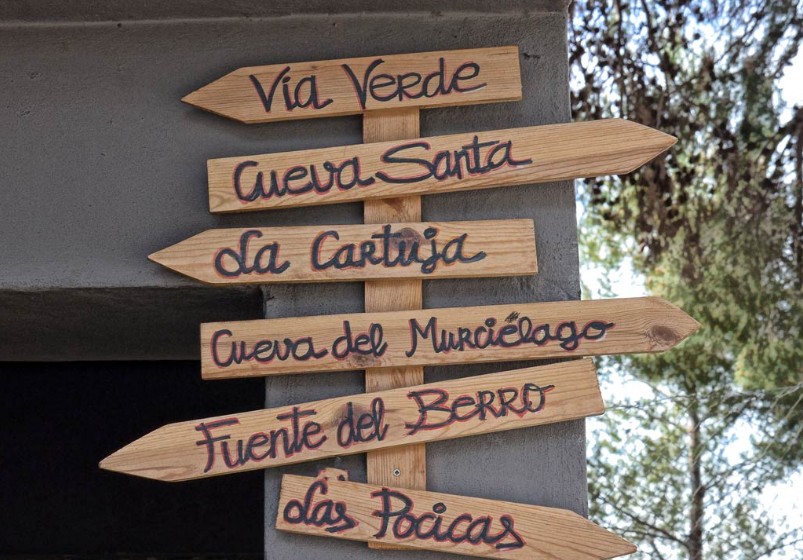 Via Verde
Cueva Santa
La Cartuja
Cueva del Murciélago
Fuente del Berro
Las Pocicas